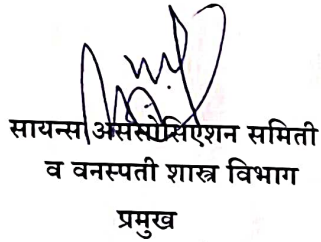 सायन्स असोसिएशन समिती
व वनस्पती शास्त्र विभाग
प्रमुख